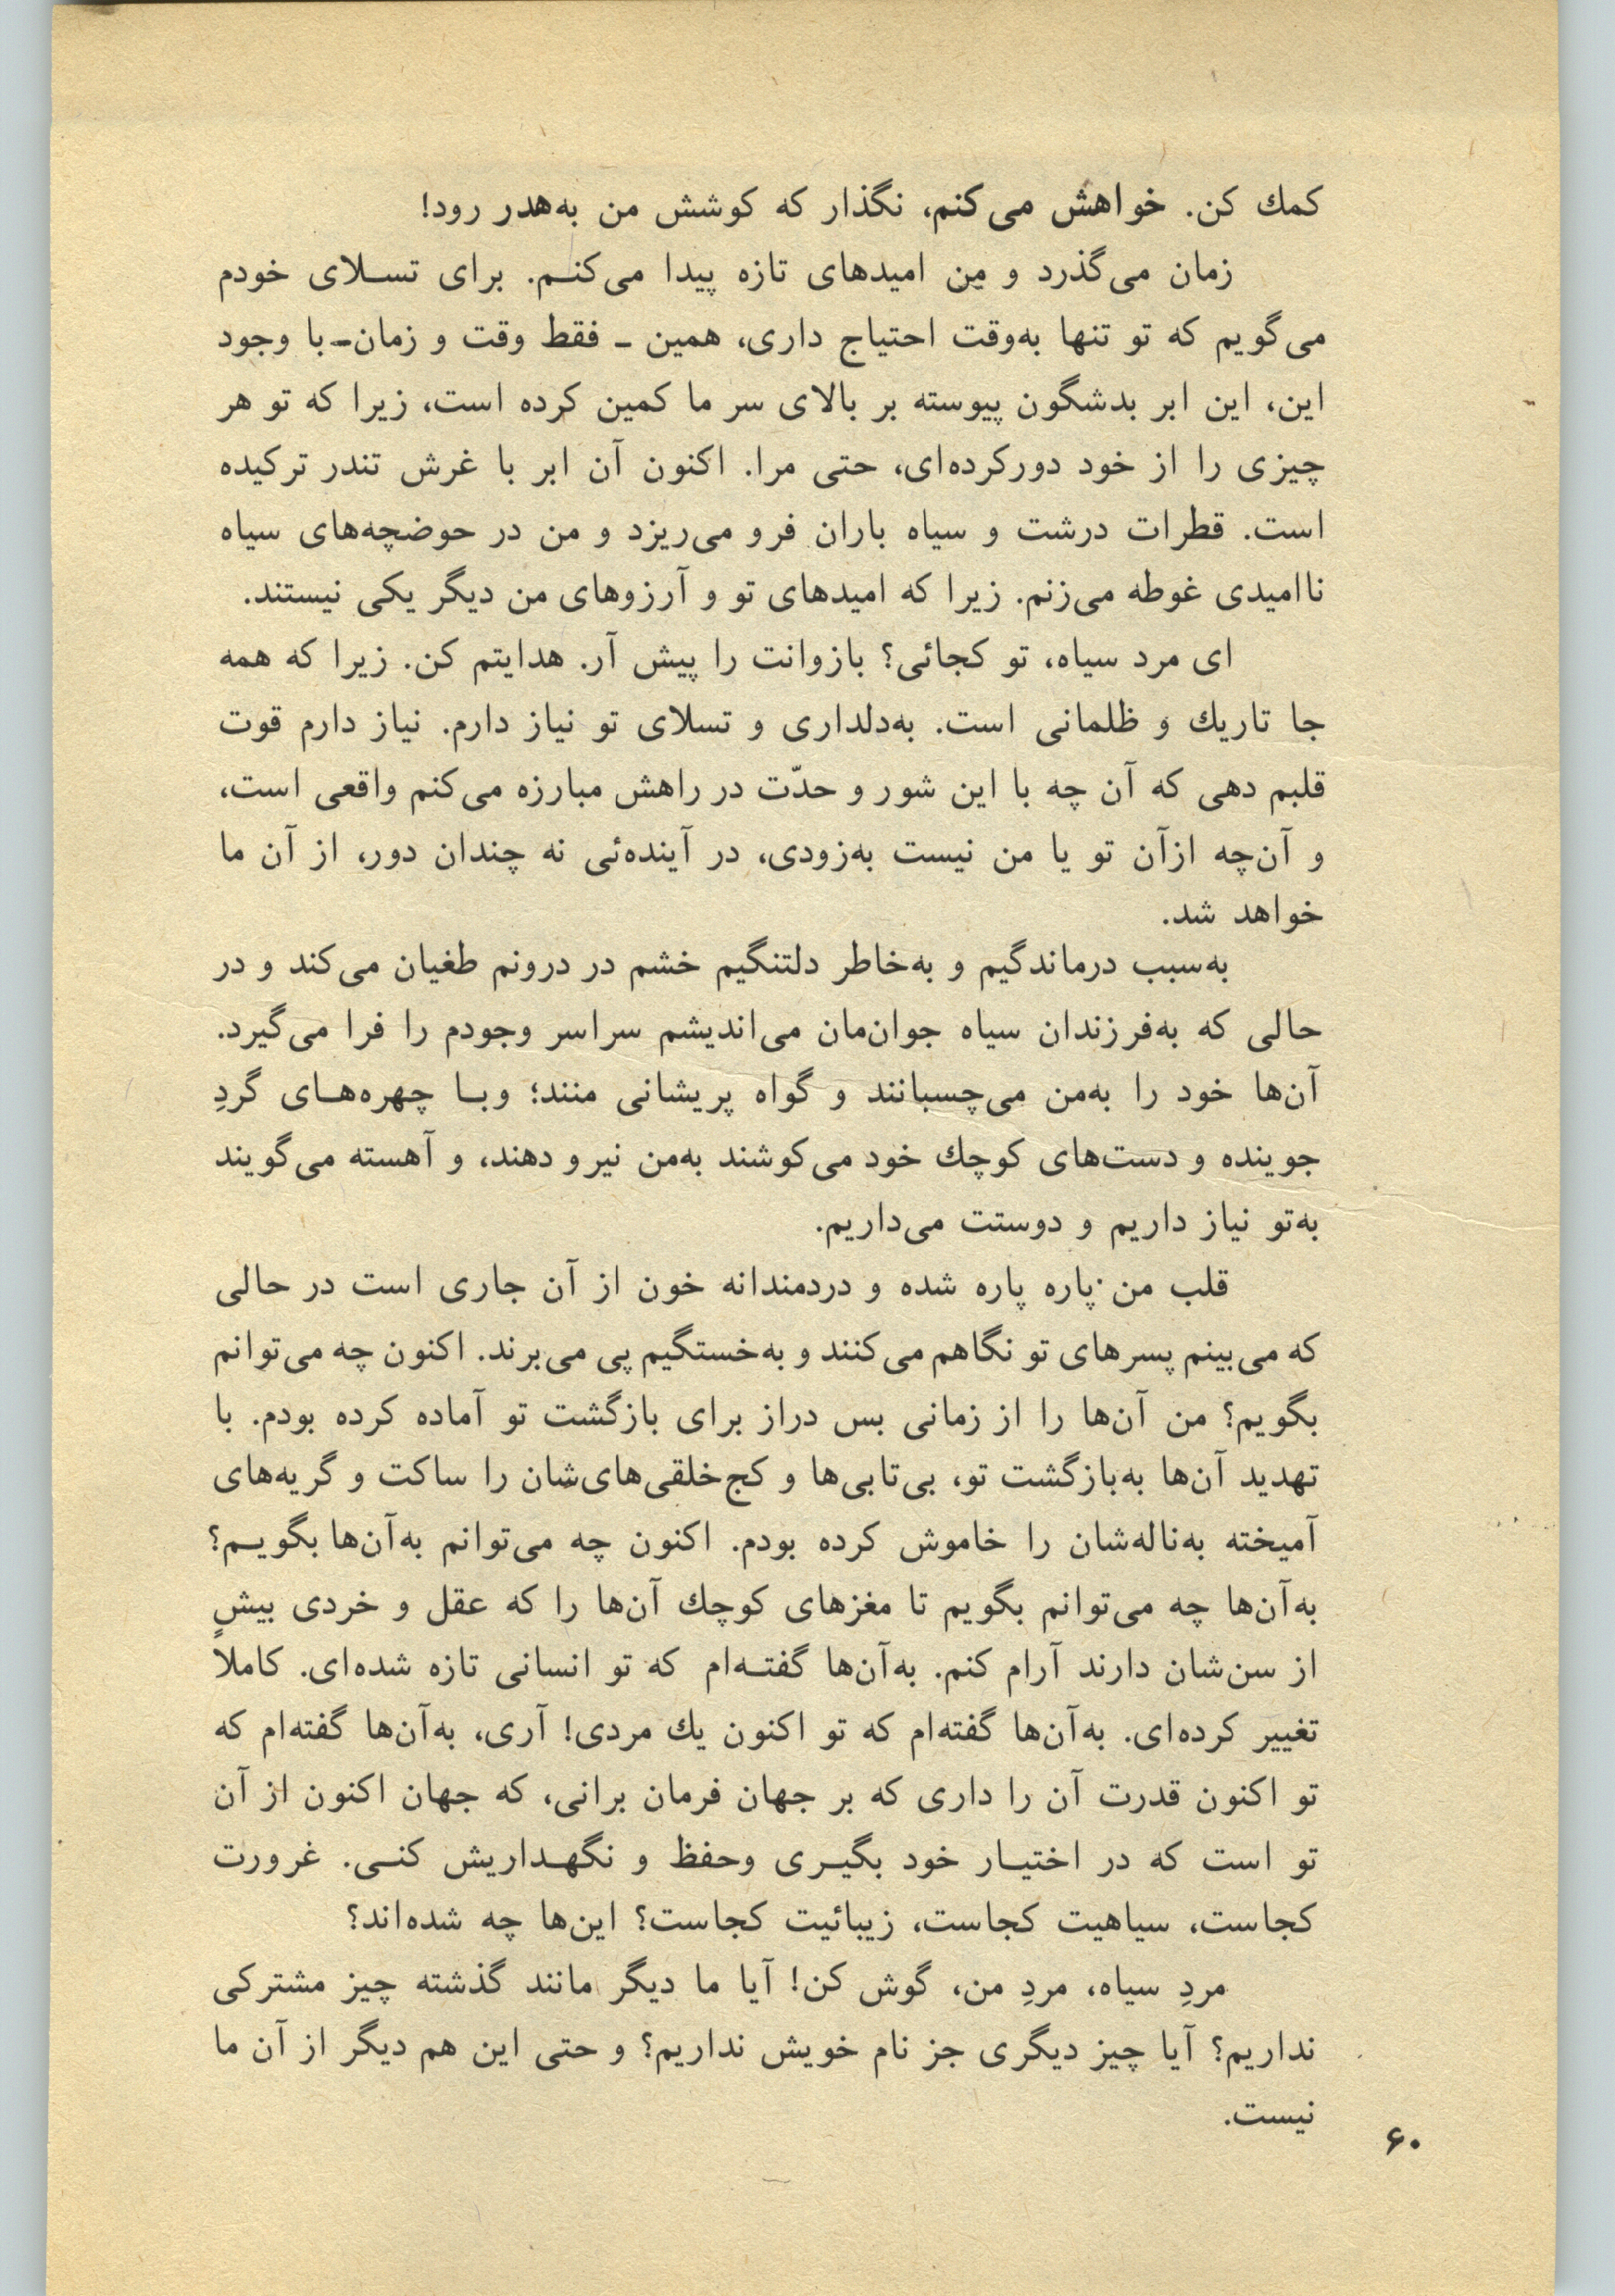 کمك کن. خواهش می‌کنم، نگذار که کوشش من به‌هدر رود!
زمان می‌گذرد و من امیدهای تازه پیدا می‌کنـم. برای تسـلای خودم
می‌گویم که تو تنها به‌وقت احتیاج داری، همین ـ فقط وقت و زمان ـ با وجود
این، این ابر بدشگون پیوسته بر بالای سر ما کمین کرده است، زیرا که تو هر
چیزی را از خود دورکرده‌ای، حتی مرا. اکنون آن ابر با غرش تندر ترکیده
است. قطرات درشت و سیاه باران فرو می‌ریزد و من در حوضچه‌های سیاه
ناامیدی غوطه می‌زنم. زیرا که امیدهای تو و آرزوهای من دیگر یکی نیستند.
ای مرد سیاه، تو کجائی؟ بازوانت را پیش آر. هدایتم کن. زیرا که همه
جا تاریك و ظلمانی است. به‌دلداری و تسلای تو نیاز دارم. نیاز دارم قوت
قلبم دهی که آن چه با این شور و حدّت در راهش مبارزه می‌کنم واقعی است،
و آن‌چه ازآن تو یا من نیست به‌زودی، در آینده‌ئی نه چندان دور، از آن ما
خواهد شد.
به‌سبب درماندگیم و به‌خاطر دلتنگیم خشم در درونم طغیان می‌کند و در
حالی که به‌فرزندان سیاه جوان‌مان می‌اندیشم سراسر وجودم را فرا می‌گیرد.
آن‌ها خود را به‌من می‌چسبانند و گواه پریشانی منند؛ وبـا چهره‌هـای گردِ
جوینده و دست‌های کوچك خود می‌کوشند به‌من نیرو دهند، و آهسته می‌گویند
به‌تو نیاز داریم و دوستت می‌داریم.
قلب من پاره پاره شده و دردمندانه خون از آن جاری است در حالی
که می‌بینم پسرهای تو نگاهم می‌کنند و به‌خستگیم پی می‌برند. اکنون چه می‌توانم
بگویم؟ من آن‌ها را از زمانی بس دراز برای بازگشت تو آماده کرده بودم. با
تهدید آن‌ها به‌بازگشت تو، بی‌تابی‌ها و کج‌خلقی‌های‌شان را ساکت و گریه‌های
آمیخته به‌ناله‌شان را خاموش کرده بودم. اکنون چه می‌توانم به‌آن‌ها بگویـم؟
به‌آن‌ها چه می‌توانم بگویم تا مغزهای کوچك آن‌ها را که عقل و خردی بیشٍ
از سن‌شان دارند آرام کنم. به‌آن‌ها گفتـه‌ام که تو انسانی تازه شده‌ای. کاملا
تغییر کرده‌ای. به‌آن‌ها گفته‌ام که تو اکنون یك مردی! آری، به‌آن‌ها گفته‌ام که
تو اکنون قدرت آن را داری که بر جهان فرمان برانی، که جهان اکنون از آن
تو است که در اختیـار خود بگیـری وحفظ و نگهـداریش کنـی. غرورت
کجاست، سیاهیت کجاست، زیبائیت کجاست؟ این‌ها چه شده‌اند؟
مردِ سیاه، مردِ من، گوش کن! آیا ما دیگر مانند گذشته چیز مشترکی
نداریم؟ آیا چیز دیگری جز نام خویش نداریم؟ و حتی این هم دیگر از آن ما
نیست.
۶۰